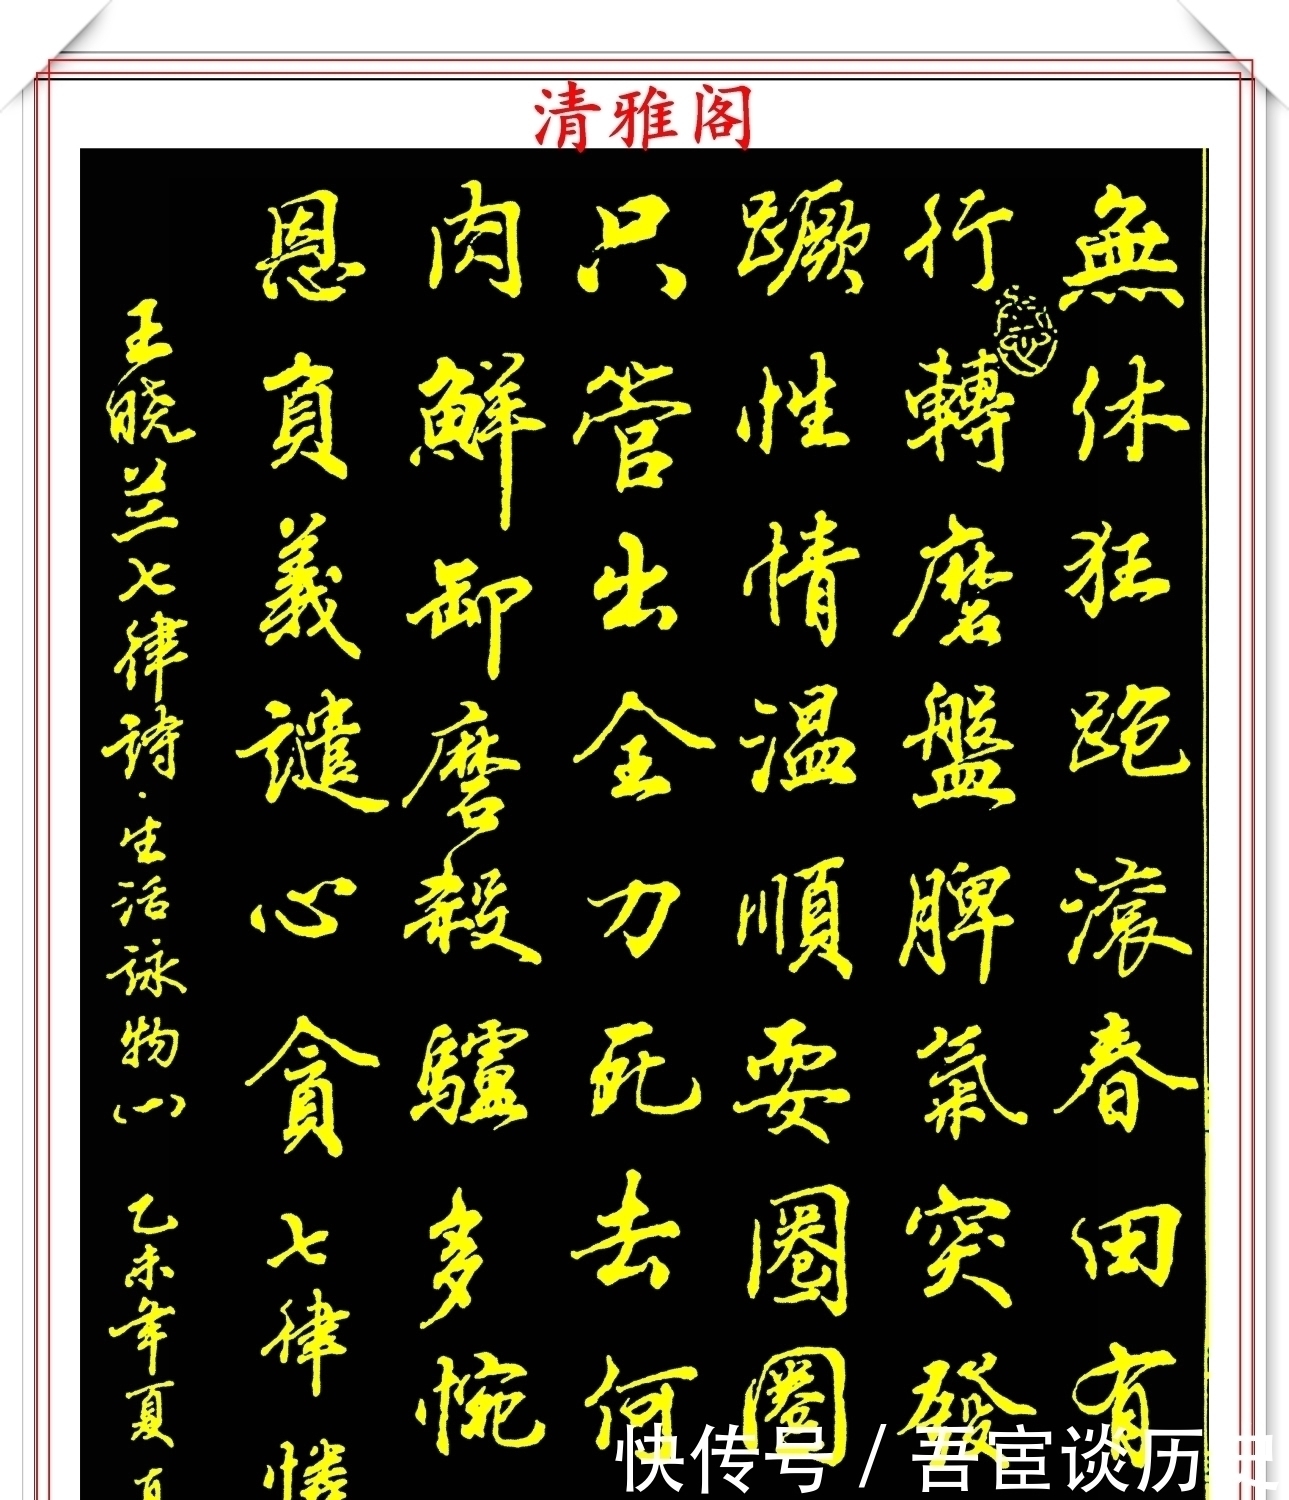 清雅阁
無休狂跑滚春田有
行轉磨盤脾氣突發
蹶性情温順要圈圈
只管出全力死去何
肉鮮卸磨殺驢多惋
恩負義譴心貪七律
王晓兰七律詩·生活詠物(一) 乙未年夏
快传号/吾宦谈历史